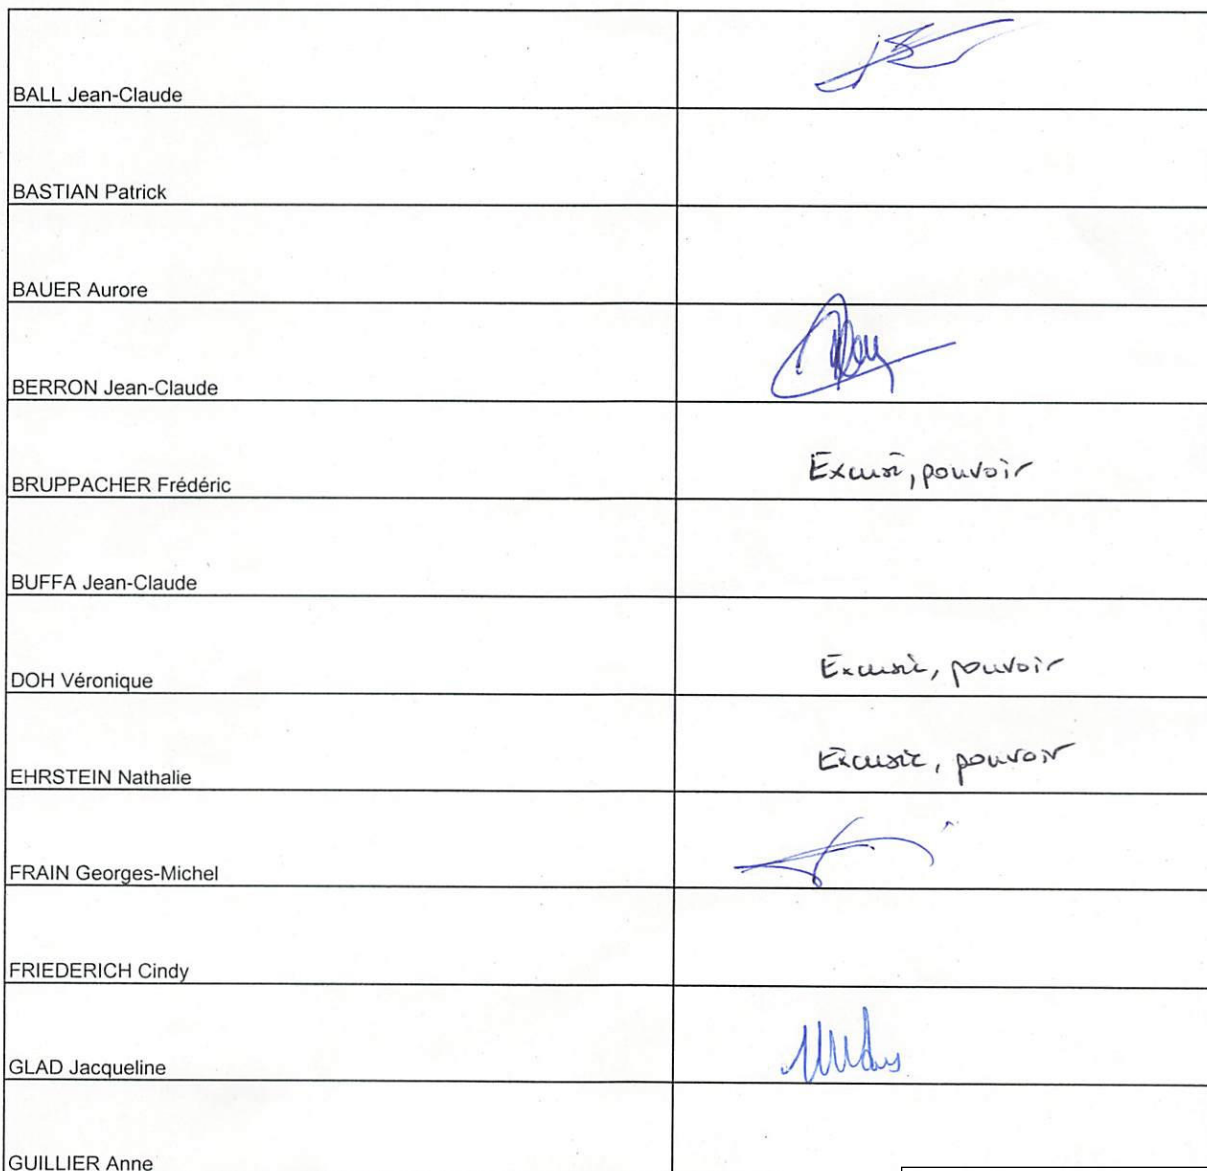 BALL Jean-Claude
BASTIAN Patrick
BAUER Aurore
BERRON Jean-Claude
BRUPPACHER Frédéric Excusé, pouvoir
BUFFA Jean-Claude
DOH Véronique Excusée, pouvoir
EHRSTEIN Nathalie Excusée, pouvoir
FRAIN Georges-Michel
FRIEDERICH Cindy
GLAD Jacqueline
GUILLIER Anne